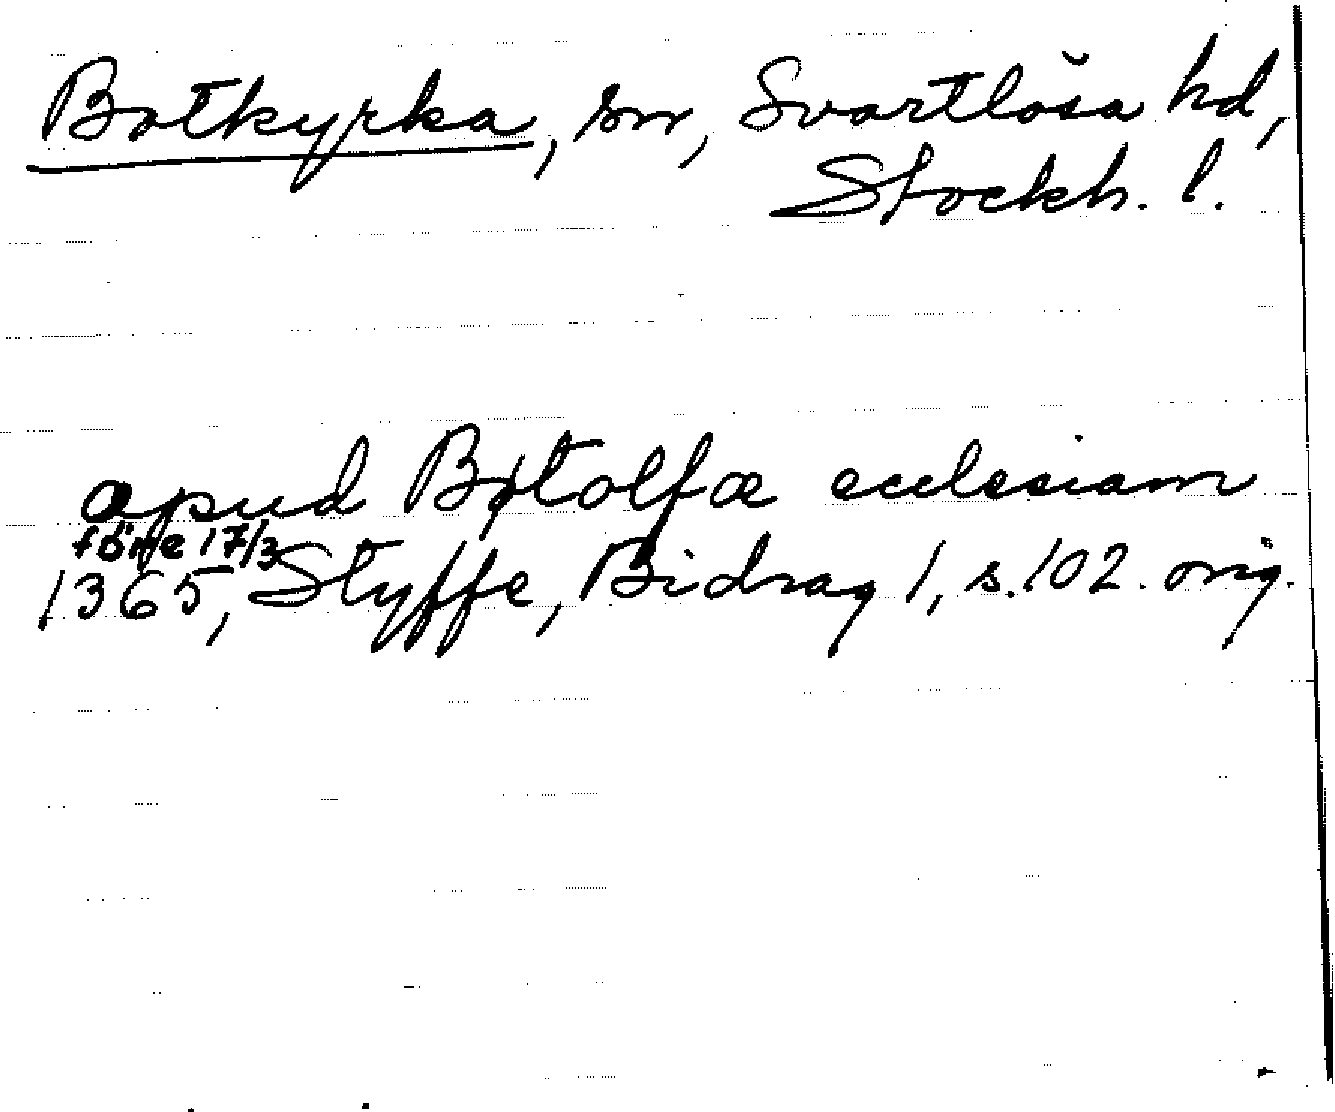 Botkyrka, sn, Svartlösa hd,
Stockh. l.
apud Bøtolfæ ecclesiam
före 17/3
1365, Styffe, Bidrag 1, s. 102. orig.